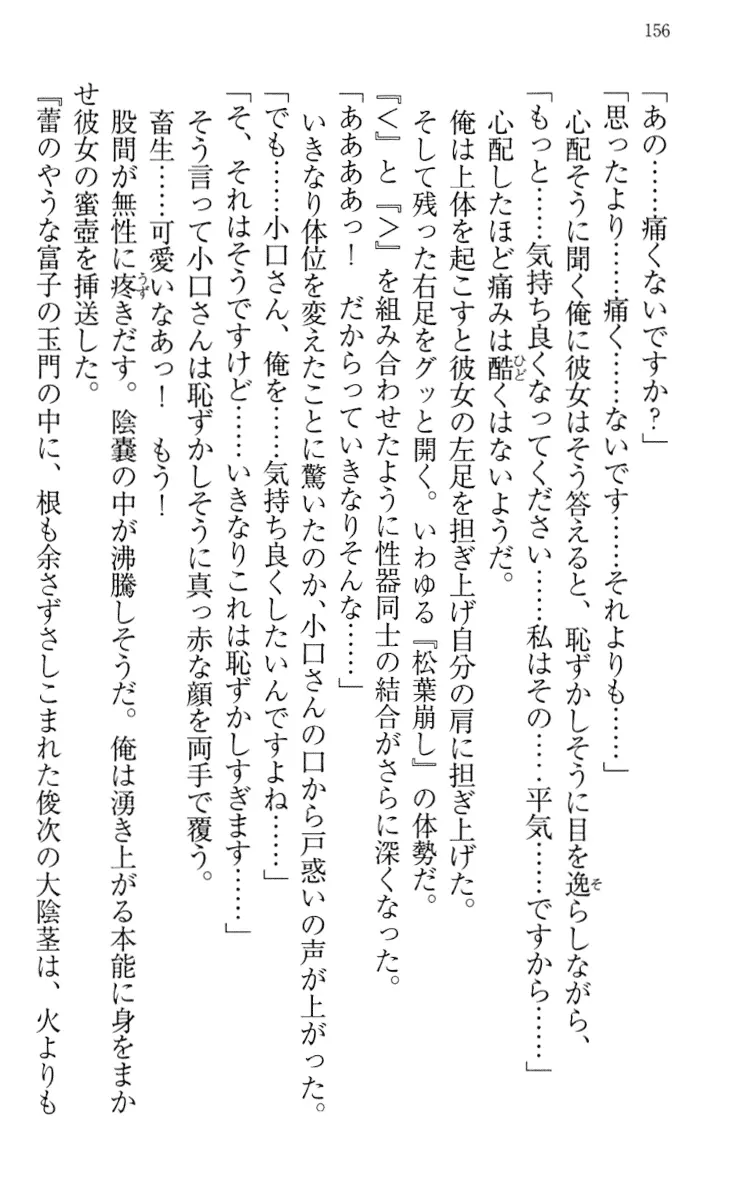 156
「あの……痛くないですか?」
「思ったより……痛く……ないです……それよりも……」
心配そうに聞く俺に彼女はそう答えると、恥ずかしそうに目を逸らしながら、
「もっと……気持ち良くなってください……私はその……平気……ですから……」
心配したほど痛みは酷くはないようだ。
俺は上体を起こすと彼女の左足を担ぎ上げ自分の肩に担ぎ上げた。
そして残った右足をグッと開く。いわゆる『松葉崩し』の体勢だ。
『＜』と『＞』を組み合わせたように性器同士の結合がさらに深くなった。
「ああああっ！　だからっていきなりそんな……」
いきなり体位を変えたことに驚いたのか、小口さんの口から戸惑いの声が上がった。
「でも……小口さん、俺を……気持ち良くしたいんですよね……」
「そ、それはそうですけど……いきなりこれは恥ずかしすぎます……」
そう言って小口さんは恥ずかしそうに真っ赤な顔を両手で覆う。
畜生……可愛いなあっ！　もう！
股間が無性に疼きだす。陰嚢の中が沸騰しそうだ。俺は湧き上がる本能に身をまか
せ彼女の蜜壺を挿送した。
『蕾のやうな富子の玉門の中に、根も余さずさしこまれた俊次の大陰茎は、火よりも